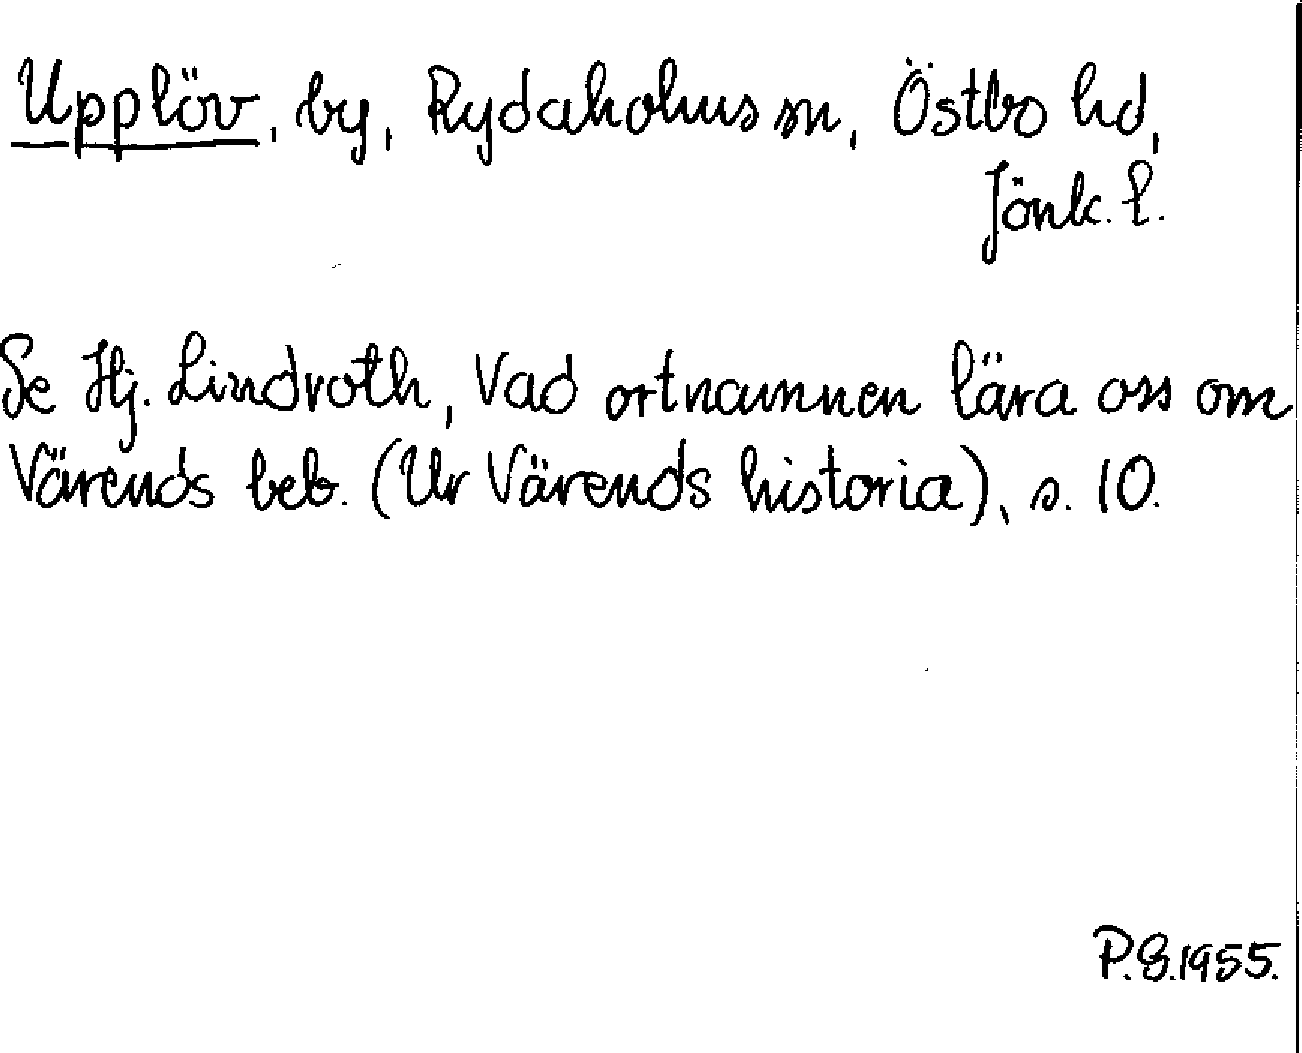 Upplöv, by, Rydaholms sn, Östbo hd,
Jönk. l.
Se Hj. Lindroth, Vad ortnamnen lära oss om
Värends beb. (Ur Värends historia), s. 10.
P.S. 1955.